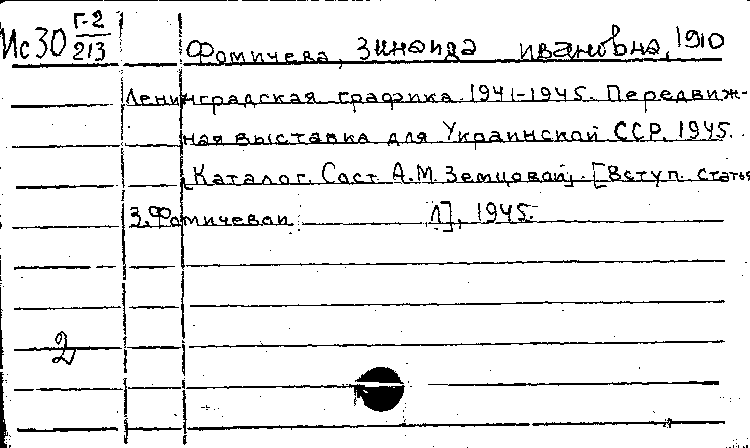 Ис30 Г-2
213
Фомичева, Зинаида Ивановна, 1910
Ленинградская графика 1941-1945. Передвиж-
ная выставка для Украинской ССР. 1945.
[Каталог. Сост. А.М. Земцовой]. [Вступ. статья
З. Фомичевой Л], 1945.
2